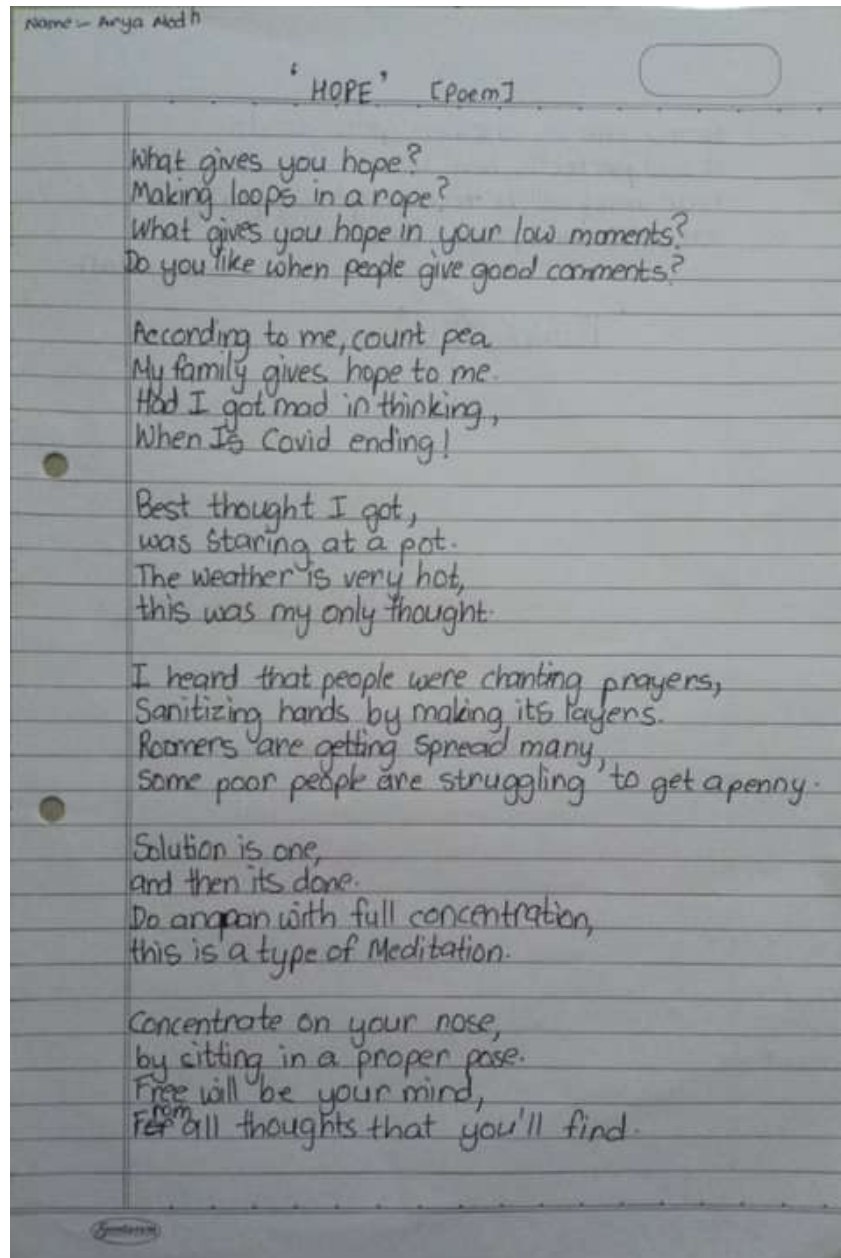 Name :- Arya Modh
'HOPE' [Poem]
What gives you hope?
Making loops in a rope?
What gives you hope in your low moments?
Do you like when people give good comments?
According to me, count pea
My family gives hope to me.
Had I got mad in thinking,
When Is Covid ending!
Best thought I got,
was staring at a pot.
The weather is very hot,
this was my only thought.
I heard that people were chanting prayers,
Sanitizing hands by making its layers.
Roomers are getting spread many,
Some poor people are struggling to get a penny.
Solution is one,
and then its done.
Do anapan with full concentration,
this is a type of Meditation.
Concentrate on your nose,
by sitting in a proper pose.
Free will be your mind,
From all thoughts that you'll find.
Sundaram